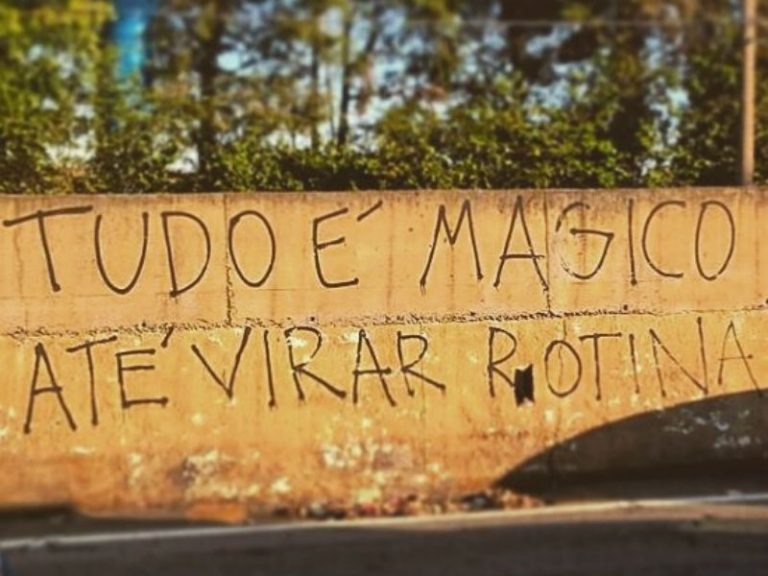 TUDO É MÁGICO
ATÉ VIRAR ROTINA